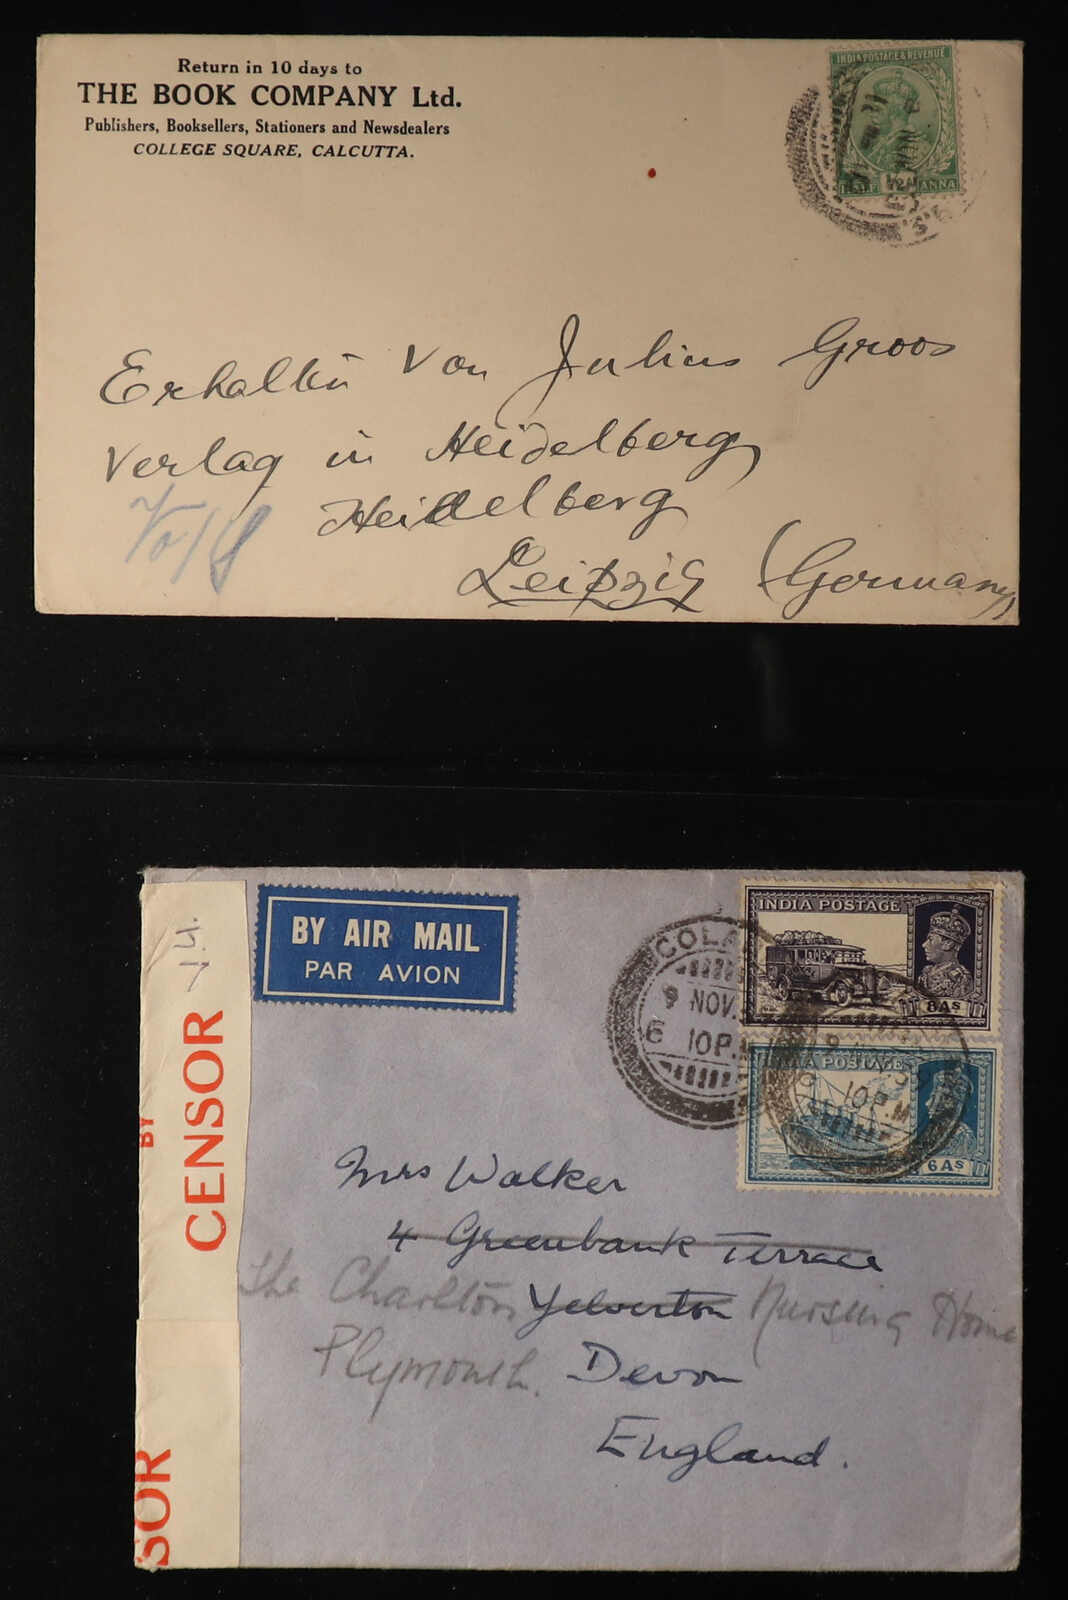 Return in 10 days to
THE BOOK COMPANY Ltd.
Publishers, Booksellers, Stationers and Newsdealers
COLLEGE SQUARE, CALCUTTA.
INDIA POSTAGE & REVENUE
HALF ANNA
Erhalten von Julius Groos
Verlag in Heidelberg
Heidelberg
Leipzig (Germany)
BY AIR MAIL
PAR AVION
BY
CENSOR
SOR
INDIA POSTAGE
8 AS
INDIA POSTAGE
6 AS
9 NOV.
6 10 P.M
10 P.M
Mrs Walker
4 Greenbank Terrace
The Charlton Yelverton Nursing Home
Plymouth. Devon
England.